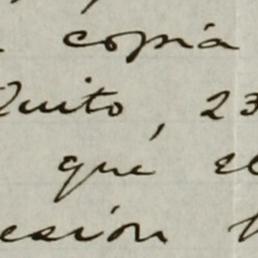 copia
Quito, 23
que el
esión